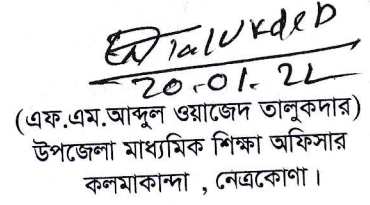 Talukder
20.01.22
(এফ.এম.আব্দুল ওয়াজেদ তালুকদার)
উপজেলা মাধ্যমিক শিক্ষা অফিসার
কলমাকান্দা , নেত্রকোণা ।